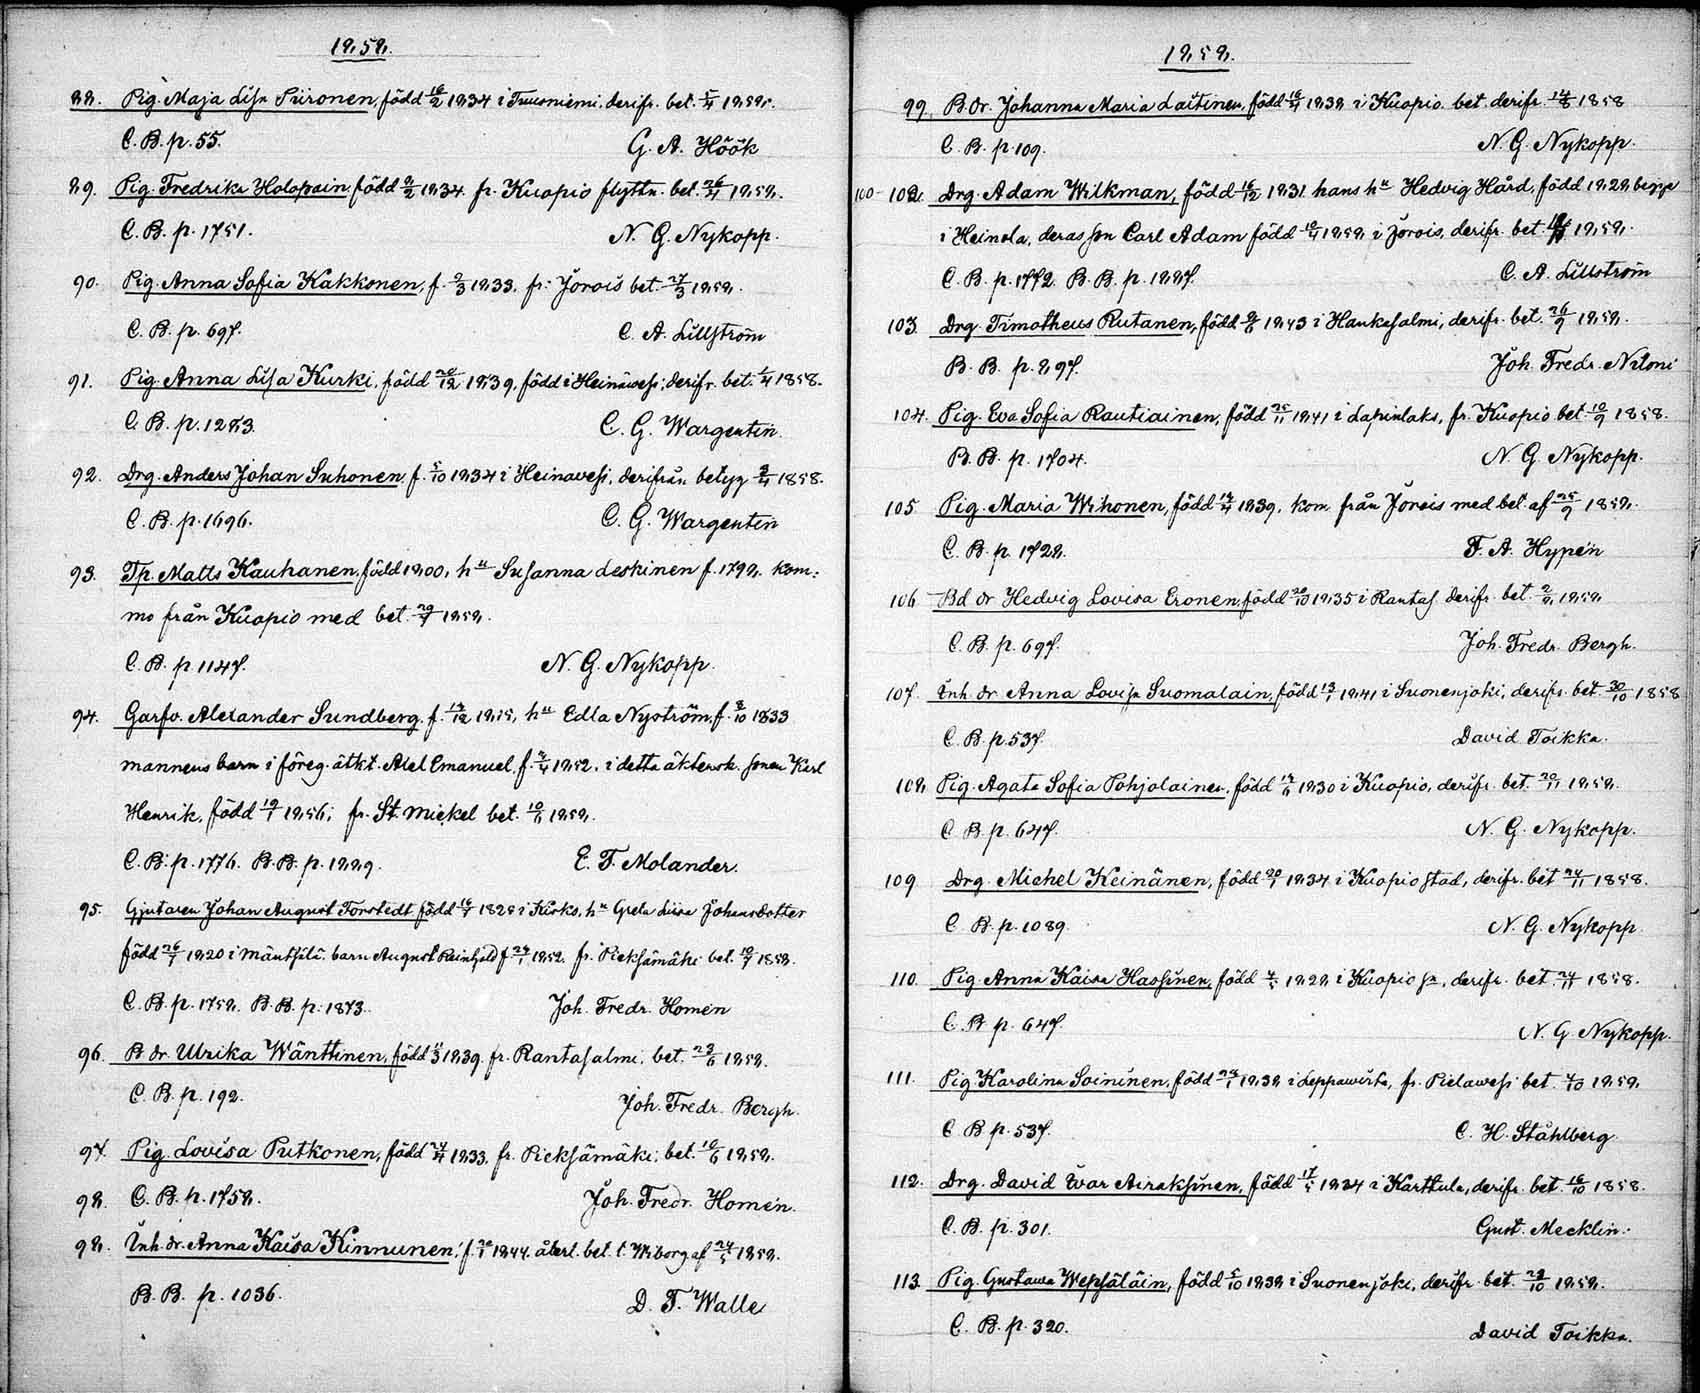 1858.
88. Pig. Maja Lisa Siironen, född 16/2 1834 i Tuusniemi, derifr. bet. 5/4 1858.
C. B. p. 55. G. A. Höök
89. Pig. Fredrika Holopain född 2/2 1834 fr. Kuopio flyttn. bet. 26/4 1858.
C. B. p. 1751. N. G. Nykopp.
90. Pig. Anna Sofia Kakkonen, f. 2/3 1833. fr. Jorois bet. 27/3 1858.
C. B. p. 697. C. A. Lillström
91. Pig. Anna Lisa Kurki, född 20/12 1839, född i Heinäwesi; derifr. bet. 1/4 1858.
C. B. p. 1283. C. G. Wargentin.
92. Drg. Anders Johan Suhonen, f. 5/10 1834 i Heinavesi, derifrån betyg 3/4 1858.
C. B. p. 1696. C. G. Wargentin
93. Tp. Matts Kauhanen, född 1800, hu Susanna Leskinen f. 1798. kom:
mo från Kuopio med bet. 29/7 1858.
C. B. p 1147. N. G. Nykopp.
94. Garfv. Alexander Sundberg, f. 13/12 1815, hu Edla Nyström, f. 8/10 1833
mannens barn i föreg. äkt. Axel Emanuel, f. 2/4 1852. i detta äktensk. sonen Karl
Henrik, född 19/1 1856; fr. St. Mickel bet. 10/6 1858.
C. B. p. 1776. B. B. p. 1889. E. F. Molander.
95. Gjutaren Johan August Forstedt född 16/7 1828 i Kisko, hu Greta Liisa Johansdotter
född 26/1 1820 i Mäntsälä. barn August Reinhold f 24/1 1852. fr. Pieksämäki bet. 10/7 1858.
C. B. p. 1758. B. B. p. 1873. Joh. Fredr. Homén
96. B dr. Ulrika Wänttinen, född 11/3 1839. fr. Rantasalmi, bet. 23/6 1858.
C. B. p. 192. Joh. Fredr. Bergh.
97. Pig. Lovisa Putkonen, född 24/4 1833. fr. Pieksämäki, bet. 10/6 1858.
98. C. B. p. 1758. Joh. Fredr. Homén.
98. Inh. dr. Anna Kaisa Kinnunen, f. 20/1 1844. återl. bet. t. Wiborg af 24/5 1858.
B. B. p. 1036. D. F. Walle
1858.
99. B Dr. Johanna Maria Laitinen, född 16/4 1838 i Kuopio. bet. derifr. 14/8 1858
C. B. p. 109. N. G. Nykopp.
100 - 102. Drg. Adam Wilkman, född 16/12 1831. hans hu Hedvig Hård, född 1828 begge
i Heinola, deras son Carl Adam född 18/4 1858 i Jorois, derifr. bet. 1858.
C. B. p. 1772. B. B. p. 1887. C. A. Lillström
103. Drg. Timotheus Rutanen, född 9/6 1843 i Hankasalmi, derifr. bet. 26/9 1858.
B. B. p. 897. Joh. Fredr.
104. Pig. Eva Sofia Rautiainen, född 25/11 1841 i Lapinlaks, fr. Kuopio bet. 10/9 1858.
B. B. p. 1704. N. G. Nykopp.
105 Pig. Maria Wihonen, född 14/4 1839. kom. från Jorois med bet. af 25/9 1858.
C. B. p. 1728. F. A. Hypén
106 Bd dr Hedvig Lovisa Eronen, född 20/10 1835 i Rantas. derifr. bet. 2/8 1858
C. B. p. 697. Joh. Fredr. Bergh.
107. Inh. dr Anna Lovisa Suomalain, född 13/1 1841 i Suonenjoki, derifr. bet 30/10 1858
C. B. p. 537. David Toikka.
108. Pig. Agata Sofia Pohjolainen, född 14/6 1830 i Kuopio, derifr. bet. 20/11 1858.
C B. p. 647. N. G. Nykopp.
109 Drg. Michel Keinänen, född 20/1 1834 i Kuopio stad, derifr. bet 24/11 1858.
C B. p. 1089. N. G. Nykopp
110. Pig. Anna Kaisa Hassinen, född 4/5 1828 i Kuopio sn, derifr. bet. 24/11 1858.
C. B p. 647. N. G. Nykopp.
111. Pig. Karolina Soininen, född 24/1 1838 i Leppäwirta, fr. Pielawesi bet. 4/10 1858.
C B p. 537. C. H. Ståhlberg
112. Drg. David Ivar Airaksinen, född 17/5 1834 i Karttula, derifr. bet. 16/10 1858.
C. B. p. 301. Gust. Mecklin.
113. Pig. Gustava Wepsäläin, född 5/10 1838 i Suonenjoki, derifr. bet. 28/10 1858.
C. B. p. 320. David Toikka.